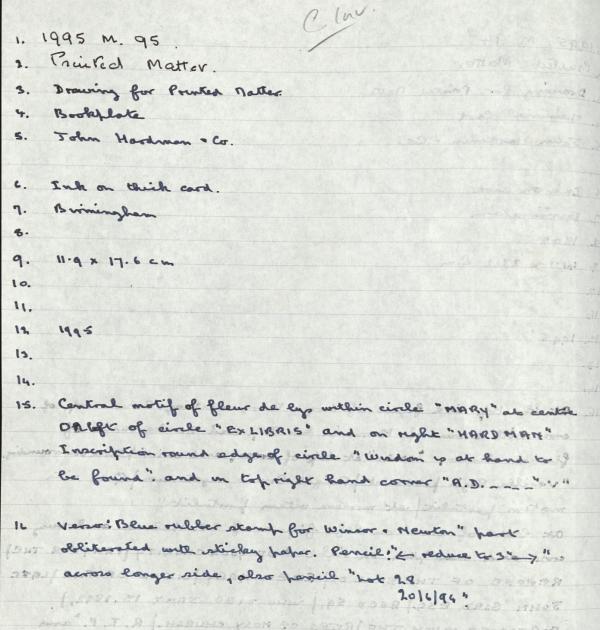 C Inv.
1. 1995 M. 95.
2. Printed Matter.
3. Drawing for Printed Matter
4. Bookplate
5. John Hardman & Co.
6. Ink on thick card.
7. Birmingham
8.
9. 11.9 x 17.6 cm
10.
11.
12. 1995
13.
14.
15. Central motif of fleur de lys within circle "MARY" at centre
On left of circle "EX LIBRIS" and on right "HARDMAN"
Inscription round edge of circle "Wisdom is at hand to
be found". and in top right hand corner "A.D. _ _ _ _"
16 Verso: Blue rubber stamp for Winsor & Newton" part
obliterated with sticky paper. Pencil: "← reduce to 3" →"
across longer side, also pencil "hot 28
20/6/94"